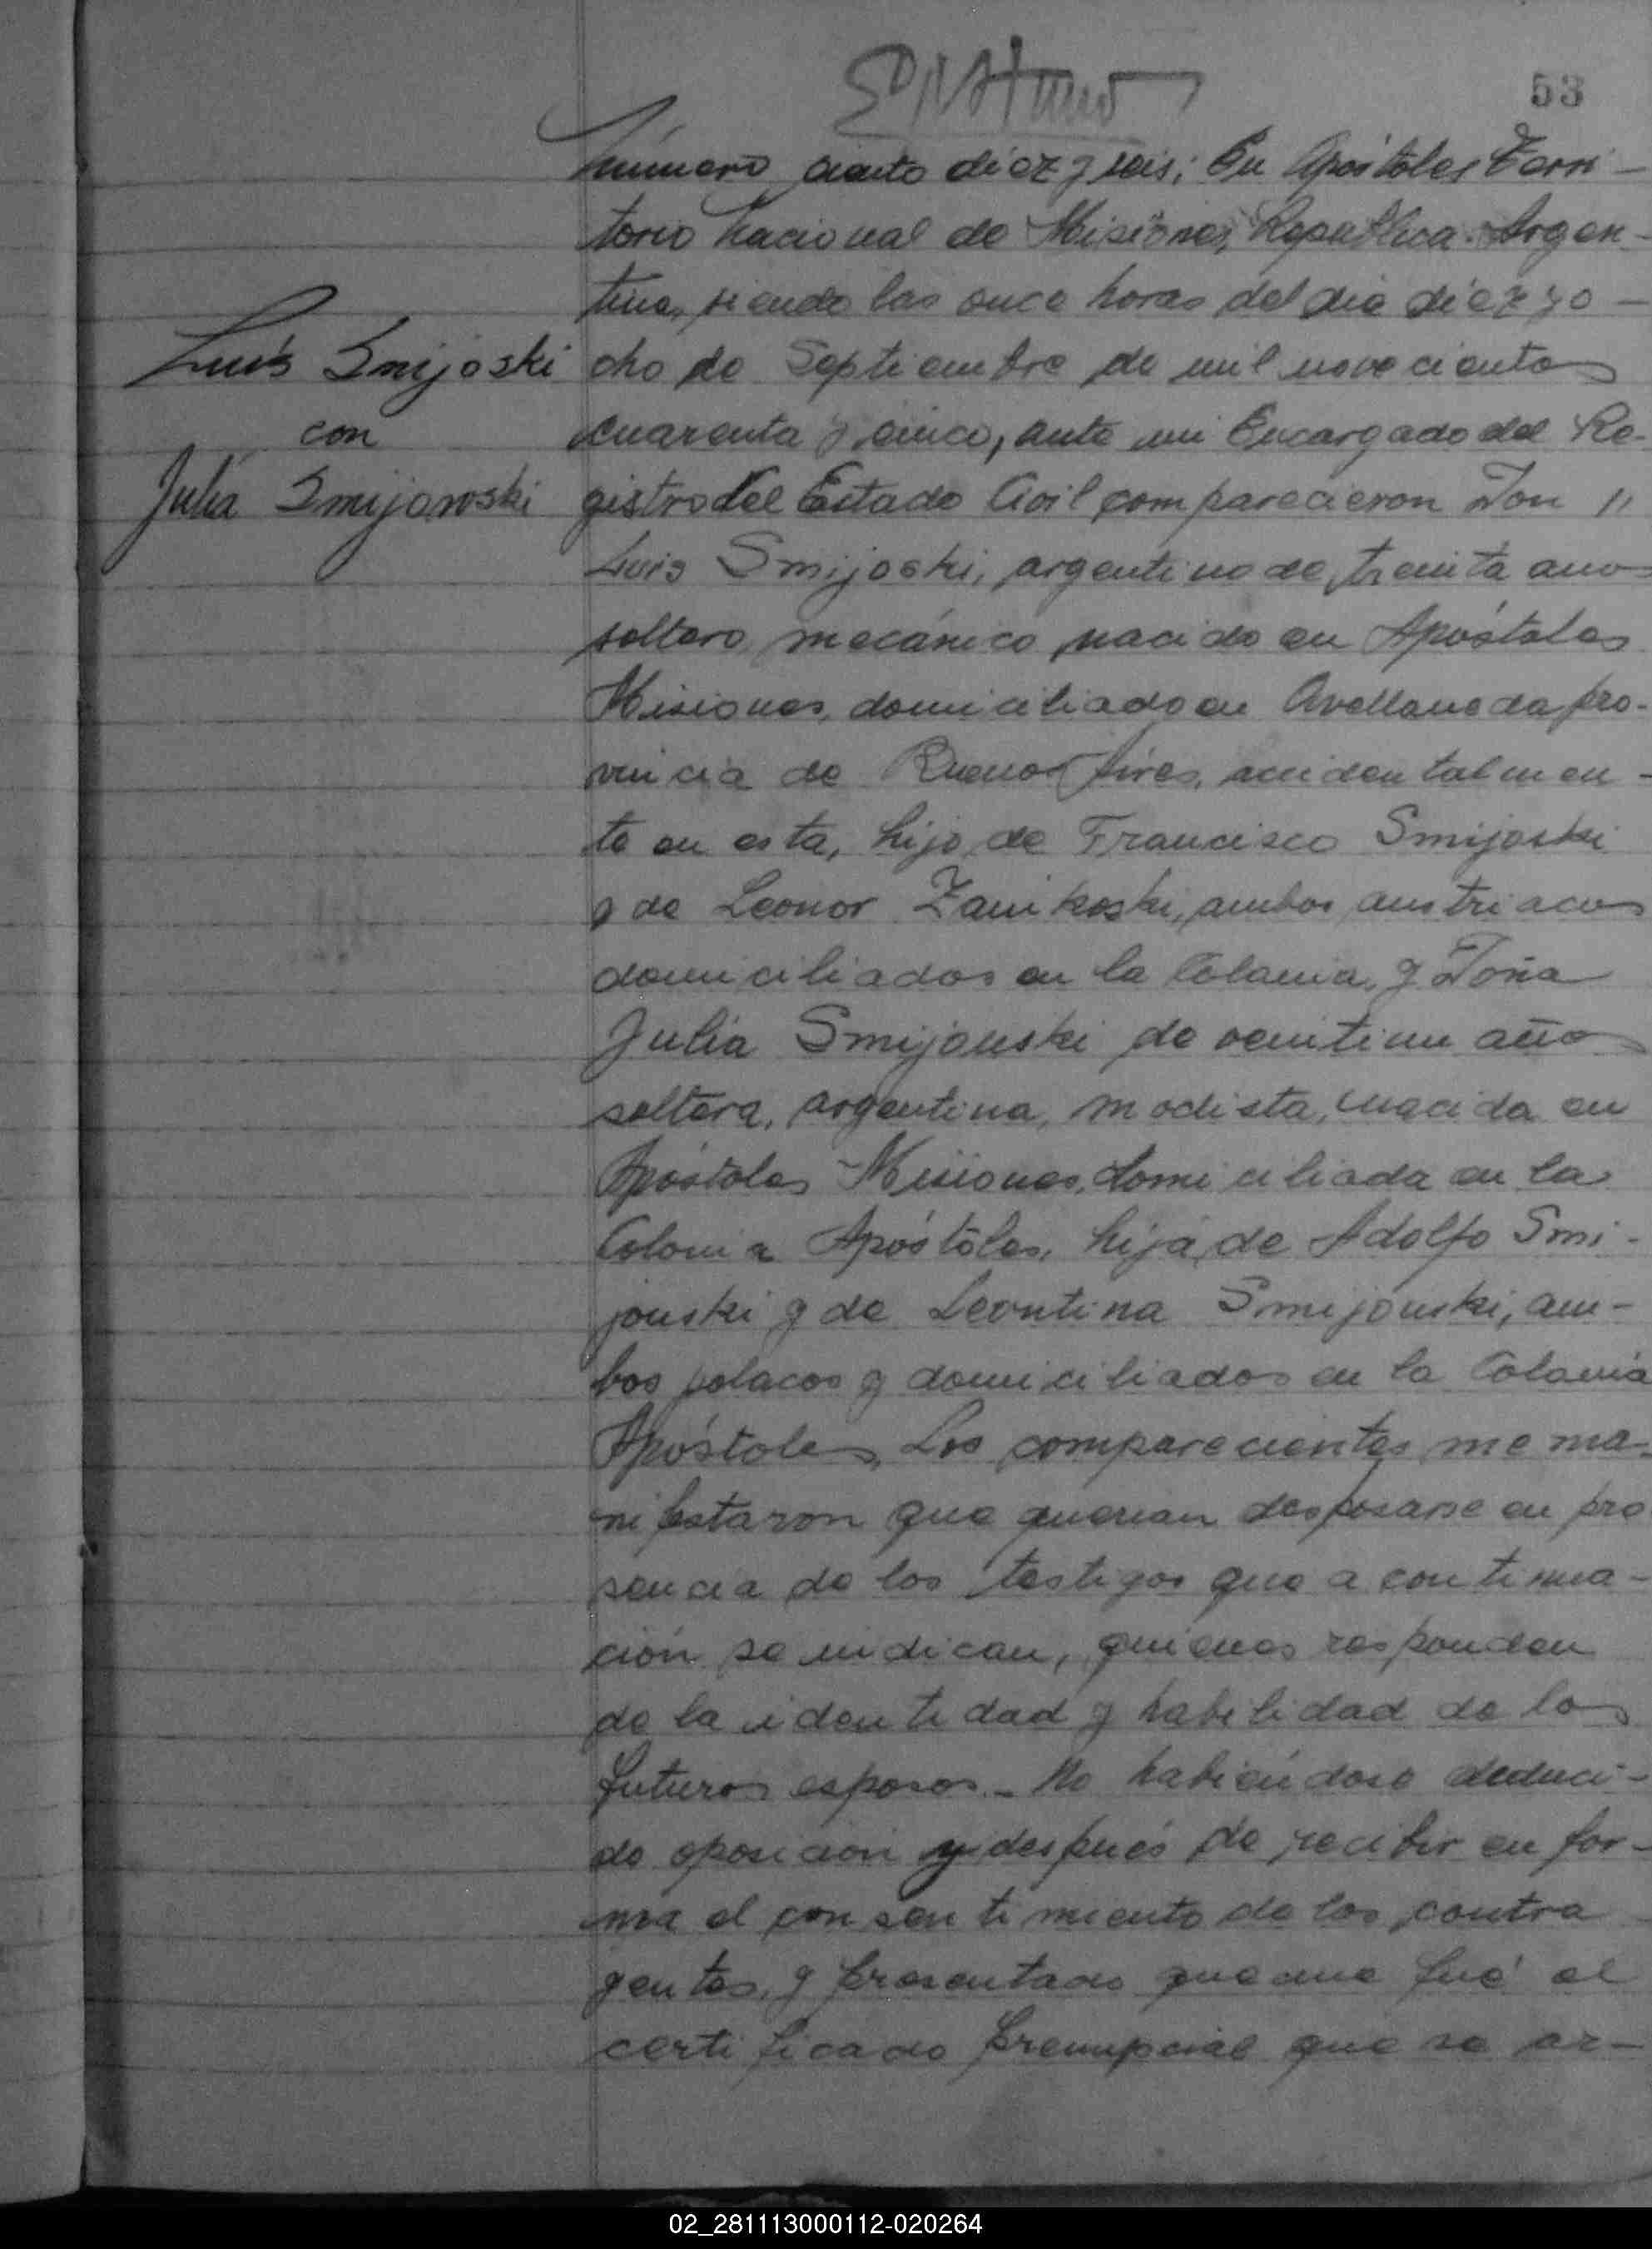 53
Número ciento diez y seis; En Apóstoles Terri-
torio Nacional de Misiones, República Argen-
tina, siendo las once horas del dia diez y o-
cho de Septiembre de mil novecientos
cuarenta y cinco, ante mi Encargado del Re-
gistro del Estado Civil comparecieron Don "
Luis Smijoski
con
Julia Smijowski
Luis Smijoski, argentino de treinta años
soltero, mecánico, nacido en Apóstoles
Misiones, domiciliado en Avellaneda, pro-
vincia de Buenos Aires, accidentalmen-
te en esta, hijo de Francisco Smijoski
y de Leonor Zanikoski, ambos austriacos
domiciliados en la Colonia, y Doña
Julia Smijouski de veintiun años
soltera, argentina, modista, nacida en
Apóstoles Misiones, domiciliada en la
Colonia Apóstoles, hija de Adolfo Smi-
jouski y de Leontina Smijouski, am-
bos polacos y domiciliados en la Colonia
Apóstoles, Los comparecientes me ma-
nifestaron que querian desposarse en pre
sencia de los testigos que a continua-
ción se indican, quienes responden
de la identidad y habilidad de los
futuros esposos.- No habiéndose deduci-
do oposición y después de recibir en for-
ma el consentimiento de los contra
yentes, y presentado que me fué el
certificado prenupcial que se ar-
02_281113000112-020264